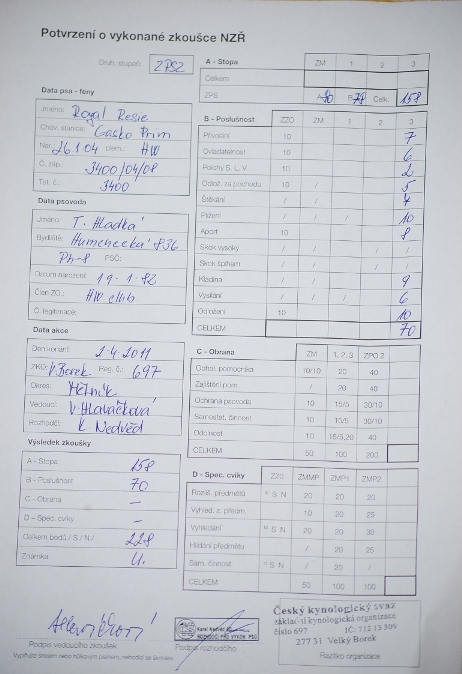 Potvrzení o vykonané zkoušce NZŘ
Druh, stupeň: ZPS2
Data psa - feny
Jméno: Royal Resie
Chov. stanice: Gasko Prim
Nar. 26.1.04 plem.: HW
Č. záp.: 3400/04/08
Tet. č.: 3400
Data psovoda
Jméno: T. Hladká
Bydliště: Humenecká 836
Ph-8 PSČ:
Datum narození: 19.1.82
Člen ZO.: HW club
Č. legitimace:
Data akce
Den konání: 2.4.2011
ZKO: V. Borek Reg. č.: 697
Okres: Mělník
Vedoucí: V. Hlaváčková
Rozhodčí: K. Nedvěd
Výsledek zkoušky
A - Stopa 158
B - Poslušnost 70
C - Obrana –
D – Spec. cviky –
Celkem bodů / S / N / 228
Známka
A - Stopa ZM 1 2 3
Celkem
ZPS A-80 B-78 Celk. 158
B - Poslušnost ZZO ZM 1 2 3
Přivolání 10 7
Ovladatelnost 10 6
Polohy S. L. V. 10 2
Odlož. za pochodu 10 / 5
Štěkání / /
Plížení / / / 10
Aport 10 8
Skok vysoký / / / /
Skok šplhem / / / /
Kladina / / 9
Vysílání / / / 6
Odložení 10 10
CELKEM 70
C - Obrana ZM 1, 2, 3 ZPO 2
Odhal. pomocníka 10/10 20 40
Zajištění pom. / 20 40
Ochrana psovoda 10 15/5 30/10
Samostat. činnost 10 15/5 30/10
Odolnost 10 15/5,20 40
CELKEM 50 100 200
D - Spec. cviky ZZO ZMMP ZMP1 ZMP2
Rozliš. předmětů S N 20 20 20
Vyhled. z. předm. 10 20 25
Vyhledání S N 20 20 30
Hlídání předmětu / 20 25
Sam. činnost S N / 20 /
CELKEM 50 100 100
Podpis vedoucího zkoušek
Karel Nedvěd
ROZHODČÍ PRO VÝKON PSŮ
Podpis rozhodčího
Český kynologický svaz
základní kynologická organizace
číslo 697 IČ: 712 13 309
277 31 Velký Borek
Razítko organizace